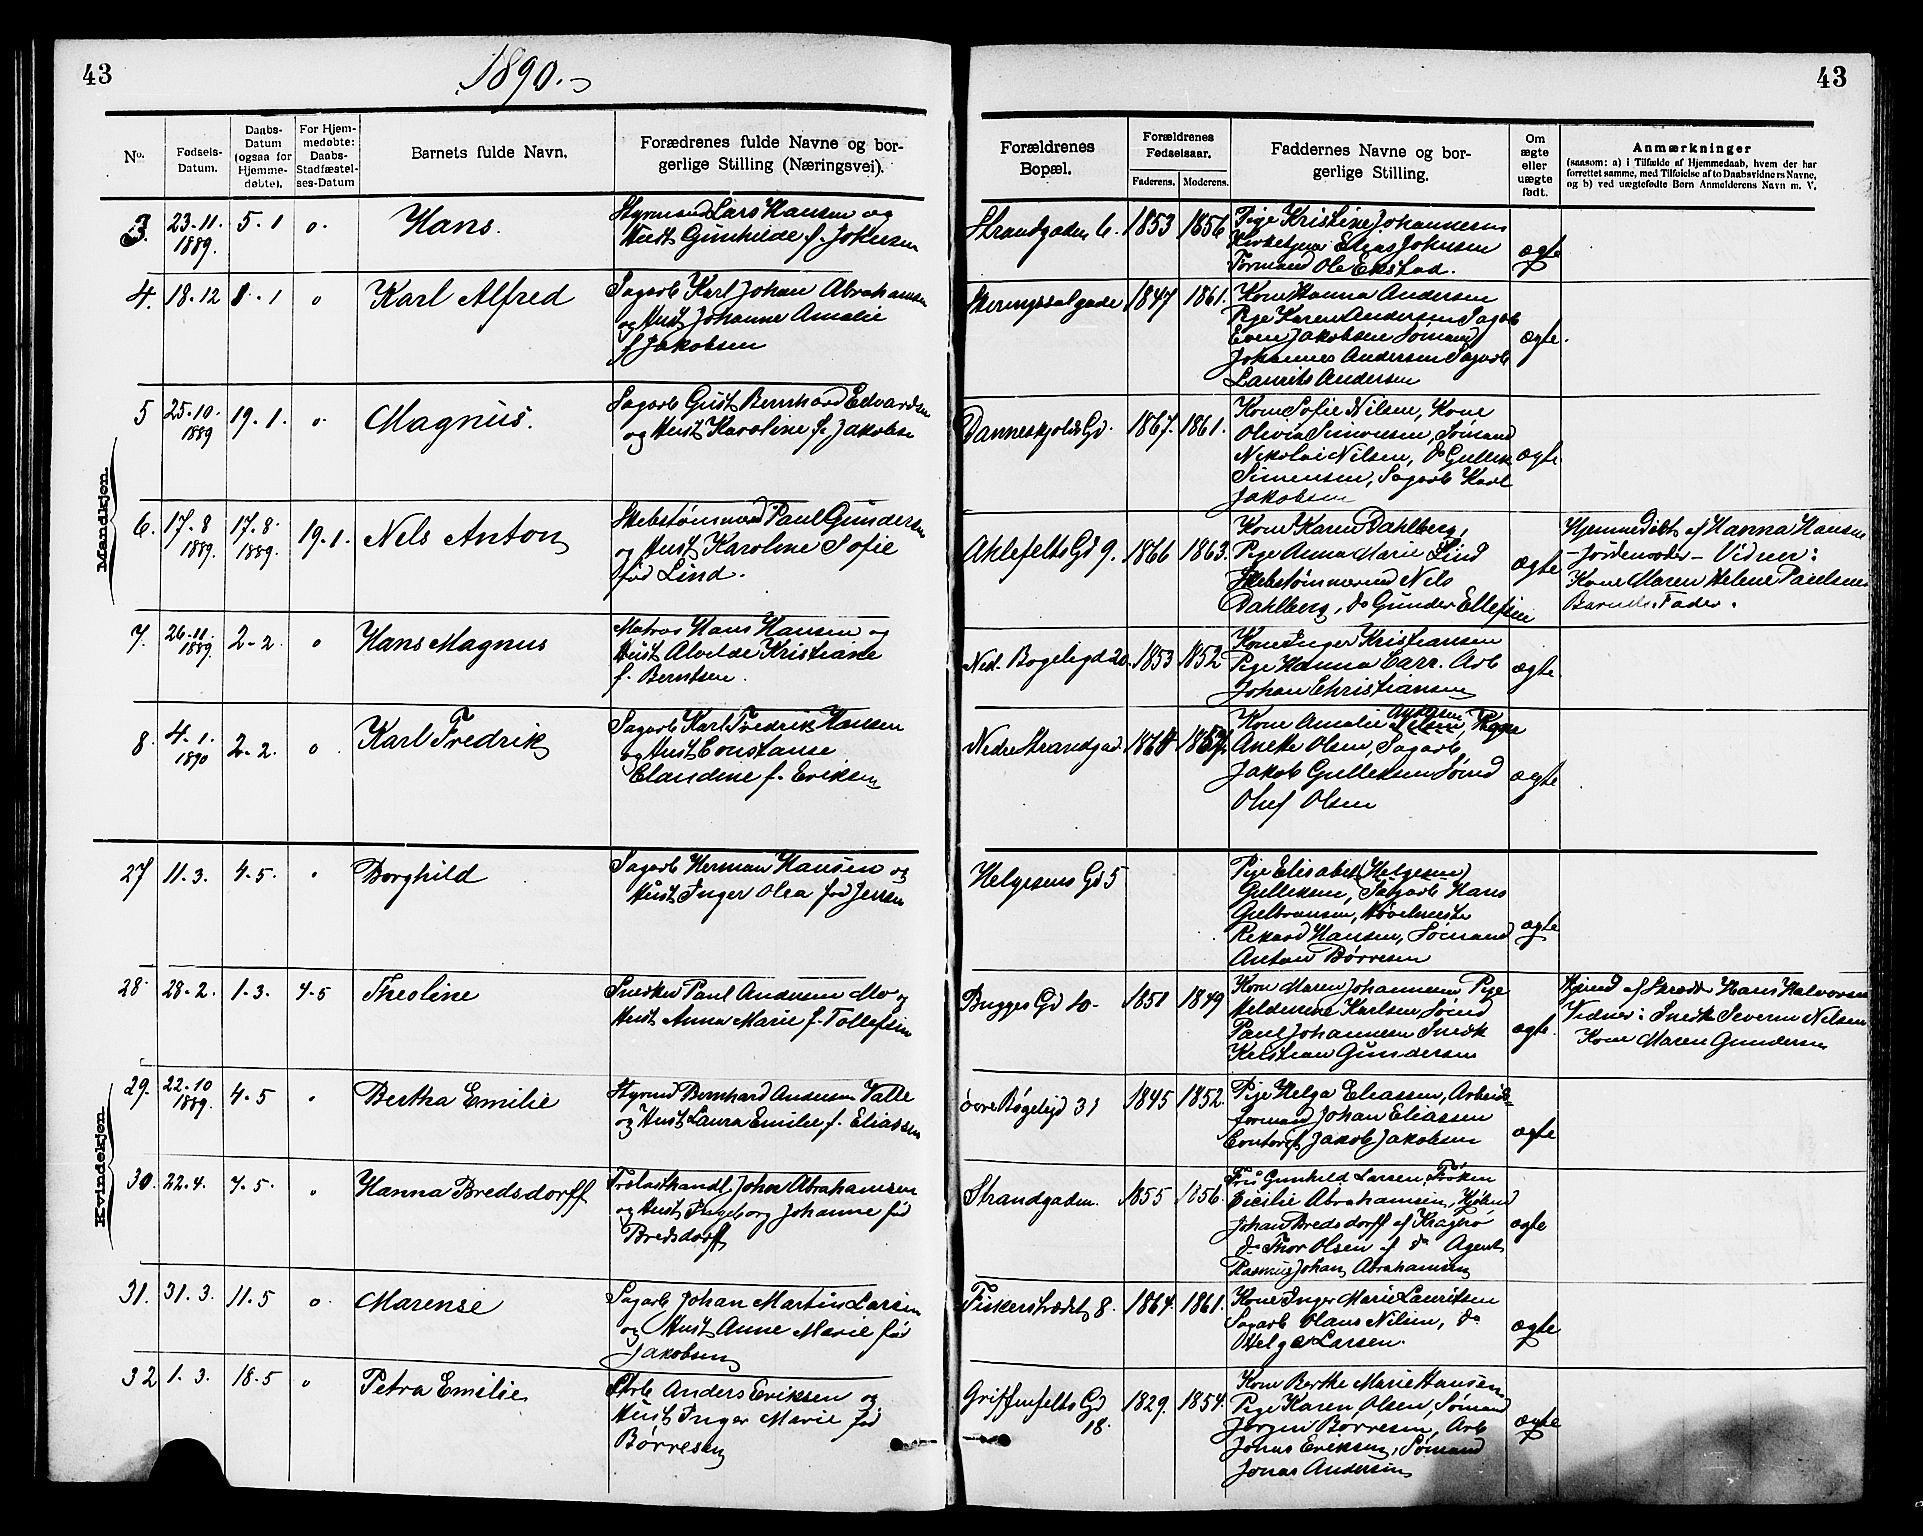 43
1890.
43
No.
Fødsels-
Datum.
Daabs-
Datum
(ogsaa for
Hjemme-
døbte).
For Hjem-
medøbte:
Daabs-
Stadfæstel-
ses-Datum
Barnets fulde Navn.
Forædrenes fulde Navne og bor-
gerlige Stilling (Næringsvei).
Forældrenes
Bopæl.
Forældrenes
Fødselsaar.
Faderens.
Moderens.
Faddernes Navne og bor-
gerlige Stilling.
Om
ægte
eller
uægte
født.
Anmærkninger
(saasom: a) i Tilfælde af Hjemmedaab, hvem der har
forrettet samme, med Tilføielse af to Daabsvidners Navne,
og b) ved uægtefødte Børn Anmelderens Navn m. V.
Mandkjøn.
3. 23-11. 5-1 o. Hans. Styrmand Lars Hansen og Strandgaden 6. 1853 1856 Pige Kristine Johannesen
1889. Hust Gunhilde f. Johnsen Kirketjener Elias Johnsen ægte
Formand Ole Ekstad.
4. 18-12 1 o Karl Alfred Sagarb Karl Johan Abrahamsen Skeringssalgade 1847 1861. Kone Hanna Andersen
og Hust Johanne Amalie Pige Karen Andersen Sagarb
f Jakobsen Even Jakobsen Sømand ægte.
Johannes Andersen Sagarb
Laurits Andersen
5 25-10- 19-1. o. Magnus. Sagarb Gust Bernhard Edvardsen Danneskjolds Gd. 1867. 1861. Kone Sofie Nilsen, Kone
1889 og Hust Karoline f. Jakobsen Olivia Simonsen, Sømand
Nikolai Nilsen, do Gullik ægte
Simensen, Sagarb Karl
Jakobsen
6. 17-8 17-8- 19-1. Nels Anton Skibstømmermd Paul Gundersen Ahlefelts Gd 9. 1866 1863. Kone Karen Dahlberg, Hjemmedøbt af Hanna Hansen
1889. 1889. og Hust Karoline Sofie Pige Anna Marie Lind ægte - Jordemoder - Vidner:
fød Lind. Skibstømmermd Nils Kone Maren Helene Paulsen
Dahlberg, do Gunder Ellefsen Barnets Fader.
7. 26-11. 2-2. o Hans Magnus Matros Hans Hansen og Ned. Bøgeligd 20. 1853 1852 Kone Inger Kristiansen
1889. Hust Alvilde Kristiane Pige Hanna Carr. Arb ægte.
f. Berntsen. Johan Christiansen
8. 4-1. 2-2. o Karl Fredrik Sagarb Karl Fredrik Hansen Nedre Strandgad. 1857. Kone Amalie
1890 og Hust Constanse Aneke Olsen, Sagarb
Claudine f. Eriksen Jakob Gulleksen Sømd ægte
Oluf Olsen
Kvindekjøn.
27 11-3. 4-5. Borghild Sagarb Herman Hansen og Helgesens Gd 5 Pige Elisabeth (Helgesen)
Hust Inger Olea fød Jensen Gulleksen, Sagarb Hans
Gulbransen, Høvelmester
Rikard Hansen, Sømand ægte
Anton Børresen
28. 28-2. 1-3. 4-5 Theoline Snedker Paul Andersen Mo og Bugges Gd 10- 1851 1849 Kone Maren Johannesen Pige Hjemd af Skrædder Hans Halvorsen
Hust Anna Marie f. Tollefsen Karlsen Sømd Vidner: Snedk Severin Nilsen
Paul Johannesen Snedk ægte. Kone Maren Gundersen
Kristian Gundersen
29. 22-10 4-5 Bertha Emilie Styrmd Bernhard Andersen Valle Bøgeligd 31 1845 1852. Pige Helga Eliassen, Arbeids-
1889. og Hust Laura Emilie f. Eliassen formand Johan Eliassen
Contorist Jakob Jakobsen ægte
30. 22-4. 4-5. Hanna Bredsdorff Trelasthandl. Johan Abrahamsen Strandgaden. 1855 1856. Fru Gunhild Larsen, Frøken
og Hust Ingeborg Johanne fød Cicilie Abrahamsen,
Bredsdorff Johan Bredsdorff af Kragerø ægte
do Thor Olsen f do Agent
Rasmus Johan Abrahamsen
31. 31-3. 11-5 o. Marense Sagarb Johan Martin Larsen Fiskerstrædet 8. 1864. 1861. Kone Inger Marie Lauritsen
og Hust Anne Marie fød Sagarb Olaus Nilsen, do ægte
Jakobsen Helge Larsen.
32 1-3. 18-5 o Petra Emilie Anders Eriksen og Griffenfelts Gd 1829. 1854. Kone Berthe Marie Hansen
Hust Inger Marie fød 18. Pige Karen Olsen, Sømand ægte
Børresen Jørgen Børresen, Arb
Jonas Eriksen, Sømand
Jonas Andersen